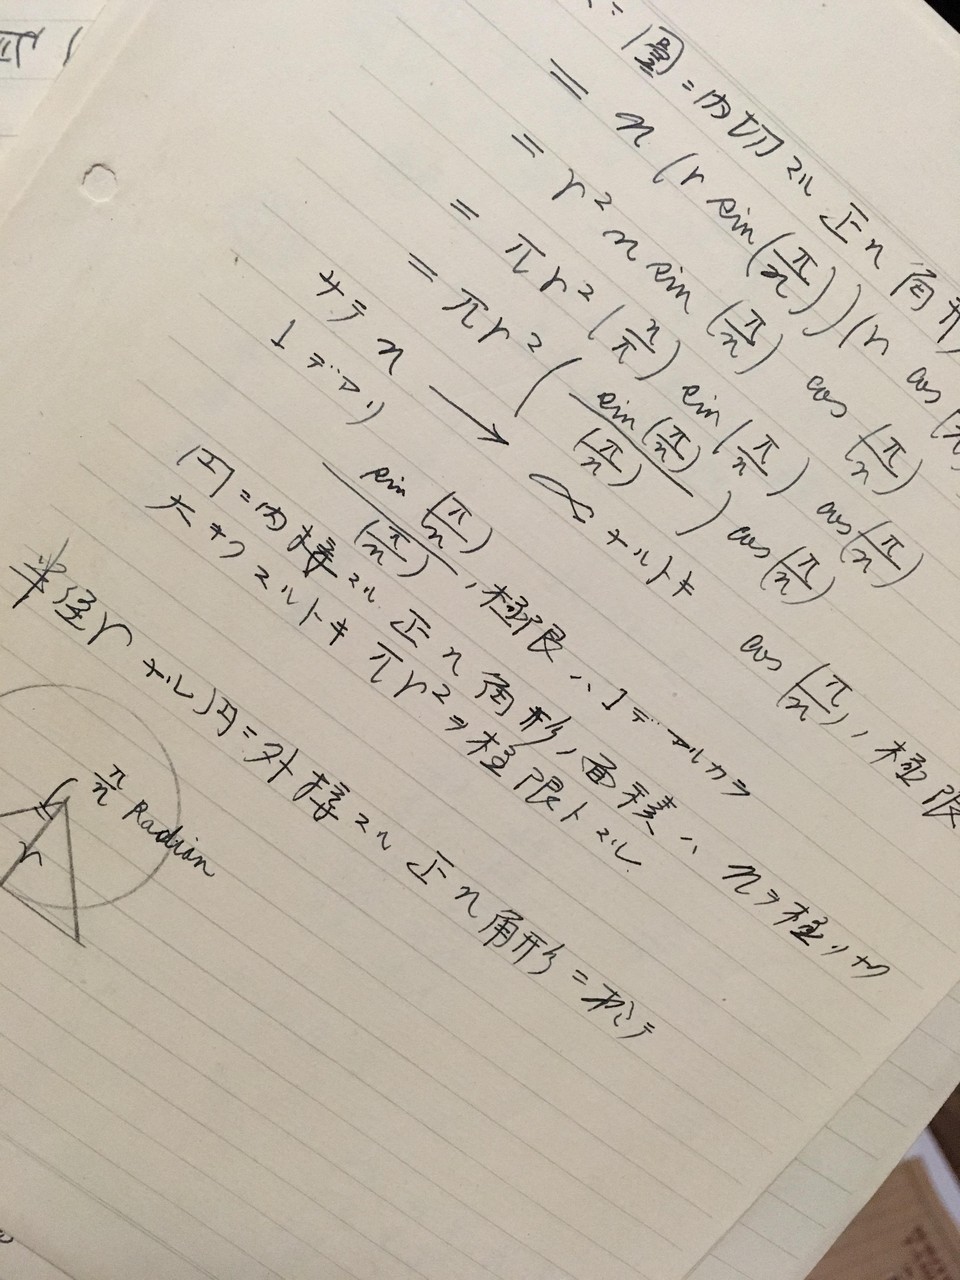 圓ニ内切スル正n角形
= n (r sin(π/n)) (r cos(π/n
= r² n sin (π/n) cos (π/n)
= πr² (n/π) sin (π/n) cos (π/n)
= πr² (sin(π/n)/(π/n)) cos (π/n)
サテ n → ∝ ナルトキ cos (π/n)ノ極限
1デアリ
sin (π/n)/(π/n) ノ極限ハ1デアルカラ
円ニ内接スル正n角形ノ面積ハ nヲ極リナク
大キクスルトキ πr²ヲ極限トスル
半径r ナル円ニ外接スル正n角形ニ於テ
π/n Radian
r